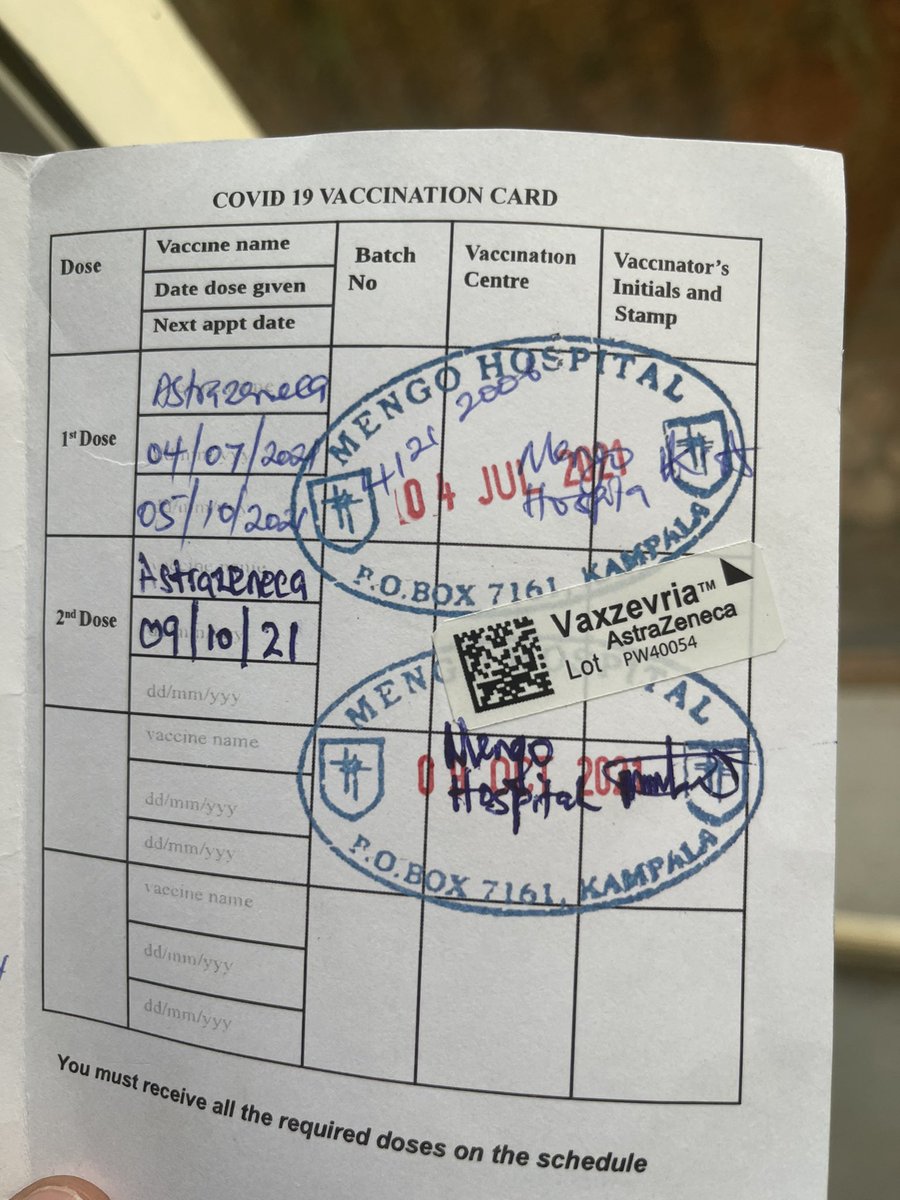 COVID 19 VACCINATION CARD
Dose
Vaccine name
Date dose given
Next appt date
Batch No
Vaccination Centre
Vaccinator's Initials and Stamp
1st Dose
Astrazeneca
04/07/2021
05/10/2021
4121
Mengo
Hospita
MENGO HOSPITAL
04 JUL 2021
P.O.BOX 7161, KAMPALA
2nd Dose
Astrazeneca
09/10/21
dd/mm/yyy
Vaxzevria™
AstraZeneca
Lot PW40054
MENGO HOSPITAL
Mengo
Hospital
09 OCT 2021
P.O.BOX 7161, KAMPALA
vaccine name
dd/mm/yyy
dd/mm/yyy
vaccine name
dd/mm/yyy
dd/mm/yyy
You must receive all the required doses on the schedule